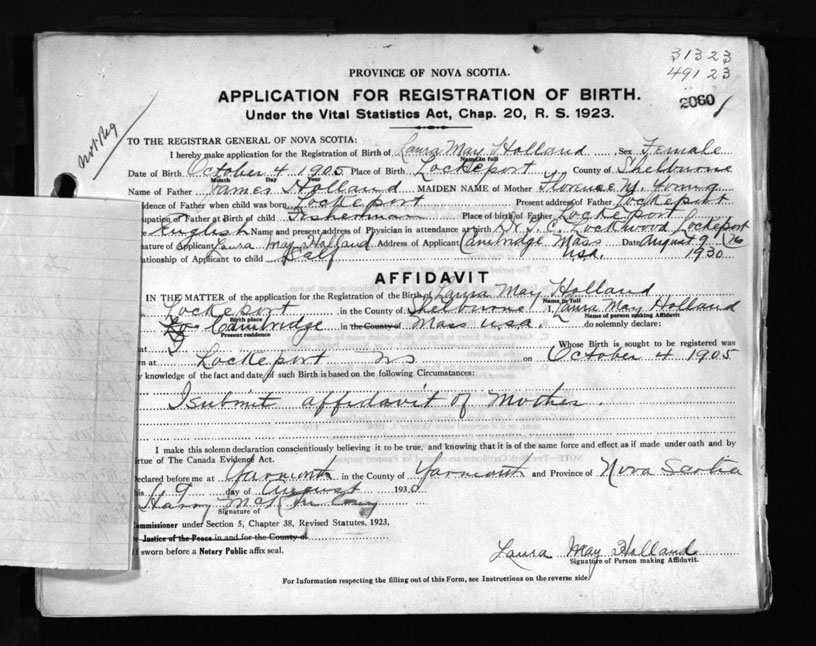 31323
49123
2060
Not Reg
PROVINCE OF NOVA SCOTIA.
APPLICATION FOR REGISTRATION OF BIRTH.
Under the Vital Statistics Act, Chap. 20, R. S. 1923.
TO THE REGISTRAR GENERAL OF NOVA SCOTIA:
I hereby make application for the Registration of Birth of Laura May Holland Sex Female
Name in full
Date of Birth October 4 1905 Place of Birth Lockeport County of Shelburne
Month Day Year
Name of Father James Holland MAIDEN NAME of Mother Florence M. Young
idence of Father when child was born Lockeport Present address of Father Lockeport
cupation of Father at Birth of child Fisherman Place of birth of Father Lockeport
English Name and present address of Physician in attendance at birth Lockwood Lockeport
nature of Applicant Laura May Holland Address of Applicant Cambridge Mass Date August 9
elationship of Applicant to child Self USA. 1930
AFFIDAVIT
IN THE MATTER of the application for the Registration of the Birth of Laura May Holland
Name in full
Lockeport in the County of Shelburne I, Laura May Holland
Birth place Name of person making Affidavit
Cambridge in the County of Mass USA. do solemnly declare:
Present residence
at Whose Birth is sought to be registered was
n at Lockeport NS on October 4 1905
y knowledge of the fact and date of such Birth is based on the following Circumstances:
I submit affidavit of Mother.
I make this solemn declaration conscientiously believing it to be true, and knowing that it is of the same force and effect as if made under oath and by
rtue of The Canada Evidence Act.
eclared before me at Yarmouth in the County of Yarmouth and Province of Nova Scotia
his 9 day of August 1930
Harry
Signature of
ommissioner under Section 5, Chapter 38, Revised Statutes, 1923,
Justice of the Peace in and for the County of
f sworn before a Notary Public affix seal.
Laura May Holland
Signature of Person making Affidavit.
For Information respecting the filling out of this Form, see Instructions on the reverse side.